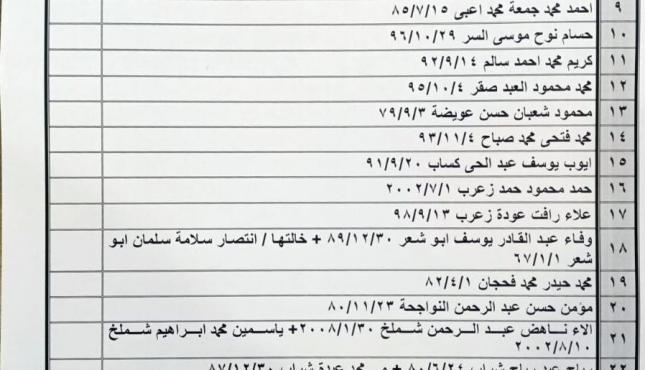 ٩ احمد محمد جمعة محمد اعبى ٨٥/٧/١٥
١٠ حسام نوح موسى السر ٩٦/١٠/٢٩
١١ كريم محمد احمد سالم ٩٢/٩/١٤
١٢ محمد محمود العبد صقر ٩٥/١٠/٤
١٣ محمود شعبان حسن عويضة ٧٩/٩/٣
١٤ محمد فتحى محمد صباح ٩٣/١١/٤
١٥ ايوب يوسف عبد الحى كساب ٩١/٩/٢٠
١٦ حمد محمود حمد زعرب ٢٠٠٢/٧/١
١٧ علاء رافت عودة زعرب ٩٨/٩/١٣
١٨ وفاء عبد القادر يوسف ابو شعر ٨٩/١٢/٣٠ + خالتها / انتصار سلامة سلمان ابو
شعر ٦٧/١/١
١٩ محمد حيدر محمد فحجان ٨٢/٤/١
٢٠ مؤمن حسن عبد الرحمن النواجحة ٨٠/١١/٢٣
٢١ الاء ناهض عبد الرحمن شملخ ٢٠٠٨/١/٣٠+ ياسمين محمد ابراهيم شملخ
٢٠٠٢/٨/١٠
٢٢ شباب ٨٠/٦/٢٤ + محمد عودة شباب ٨٧/١٢/٣٠